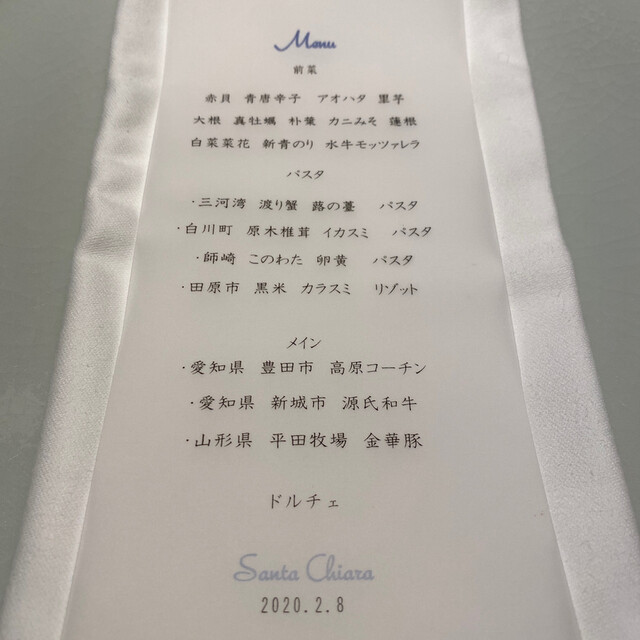 Menu
前菜
赤貝 青唐辛子 アオハタ 里芋
大根 真牡蠣 朴葉 カニみそ 蓮根
白菜菜花 新青のり 水牛モッツァレラ
パスタ
・三河湾 渡り蟹 蕗の薹 パスタ
・白川町 原木椎茸 イカスミ パスタ
・師崎 このわた 卵黄 パスタ
・田原市 黒米 カラスミ リゾット
メイン
・愛知県 豊田市 高原コーチン
・愛知県 新城市 源氏和牛
・山形県 平田牧場 金華豚
ドルチェ
Santa Chiara
2020.2.8